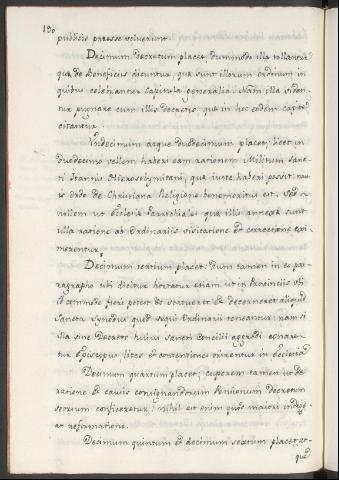 190
publicis praeesse voluerint.
Decimum decretum placet, dummodo illa tollantur
quae de beneficiis dicuntur, quae sunt illorum ordinum in
quibus celebrantur capitula generalia. Nam illa viden-
tur pugnare cum illis decretis, quae in hoc eodem capite
citantur.
Undecimum atque duodecimum placet; licet in
duodecimo vellem haberi eam rationem Militum sanc-
ti Ioannis Hierosolymitani, quae iuste haberi possit: nam
is ordo de Christiana Religione benemeritus est. Sed
nollem ut Ecclesiae Parrochiales quae illis annexae sunt
illa ratione ab Ordinariis visitatione et correctione exi-
merentur.
Decimum tertium placet: dum tamen in eo pa-
ragrapho ubi dicitur hortatur etiam ut in Provinciis ubi
id commode fieri potest et statueret et decerneret aliquid
Sancta Synodus quod sequi Ordinarii teneantur: nam si
illa sine Decreto huius Sancti Concilii aggredi conare-
tur Episcopus lites et contentiones orirentur in Ecclesia.
Decimum quartum placet; cuperem tamen ut de
ratione et causis consignandorum Decretum
seorsum conficeretur; nihil est enim quod maiori indige-
at reformatione.
Decimum quintum et decimum sextum placet, at-
que